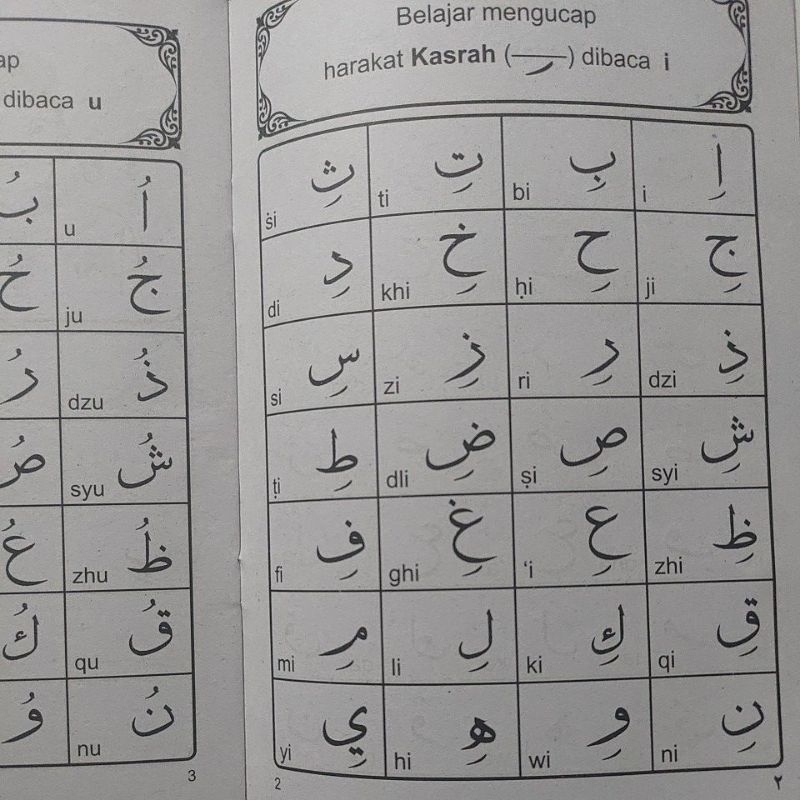 Belajar mengucap
harakat Kasrah (ـِ) dibaca i
اِ i بِ bi تِ ti ثِ ṡi
جِ ji حِ ḥi خِ khi دِ di
ذِ dzi رِ ri زِ zi سِ si
شِ syi صِ ṣi ضِ dli طِ ṭi
ظِ zhi عِ ‘i غِ ghi فِ fi
قِ qi كِ ki لِ li مِ mi
نِ ni وِ wi هِ hi يِ yi
2 ٢
dibaca u
اُ u بُ
جُ ju حُ
ذُ dzu رُ
شُ syu صُ
ظُ zhu عُ
قُ qu كُ
نُ nu وُ
3